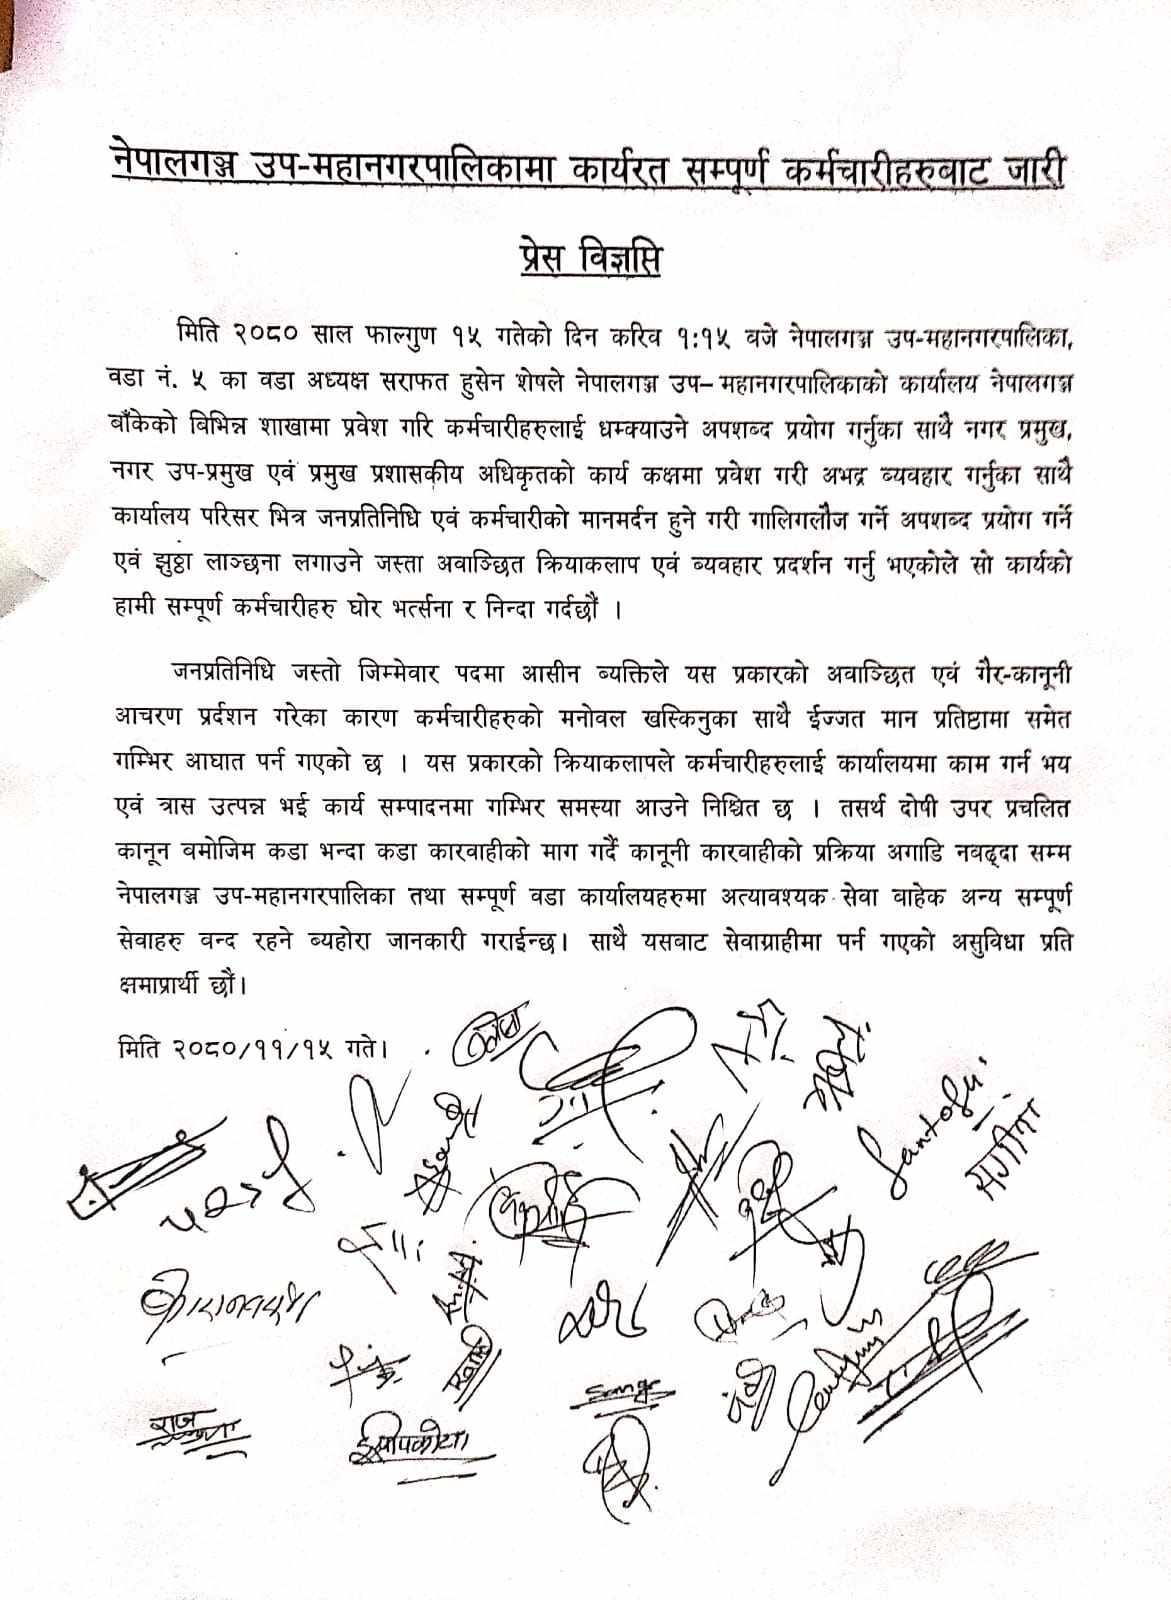 नेपालगञ्ज उप-महानगरपालिकामा कार्यरत सम्पूर्ण कर्मचारीहरुबाट जारी
प्रेस विज्ञप्ति
मिति २०८० साल फाल्गुण १५ गतेको दिन करिव १:१५ वजे नेपालगञ्ज उप-महानगरपालिका,
वडा नं. ५ का वडा अध्यक्ष सराफत हुसेन शेषले नेपालगञ्ज उप– महानगरपालिकाको कार्यालय नेपालगञ्ज
बाँकेको बिभिन्न शाखामा प्रवेश गरि कर्मचारीहरुलाई धम्क्याउने अपशब्द प्रयोग गर्नुका साथै नगर प्रमुख,
नगर उप-प्रमुख एवं प्रमुख प्रशासकीय अधिकृतको कार्य कक्षमा प्रवेश गरी अभद्र ब्यवहार गर्नुका साथै
कार्यालय परिसर भित्र जनप्रतिनिधि एवं कर्मचारीको मानमर्दन हुने गरी गालिगलौज गर्ने अपशब्द प्रयोग गर्ने
एवं झुठ्ठा लाञ्छना लगाउने जस्ता अवाञ्छित क्रियाकलाप एवं ब्यवहार प्रदर्शन गर्नु भएकोले सो कार्यको
हामी सम्पूर्ण कर्मचारीहरु घोर भर्त्सना र निन्दा गर्दछौं ।
जनप्रतिनिधि जस्तो जिम्मेवार पदमा आसीन ब्यक्तिले यस प्रकारको अवाञ्छित एवं गैर-कानूनी
आचरण प्रर्दशन गरेका कारण कर्मचारीहरुको मनोवल खस्किनुका साथै ईज्जत मान प्रतिष्ठामा समेत
गम्भिर आघात पर्न गएको छ । यस प्रकारको क्रियाकलापले कर्मचारीहरुलाई कार्यालयमा काम गर्न भय
एवं त्रास उत्पन्न भई कार्य सम्पादनमा गम्भिर समस्या आउने निश्चित छ । तसर्थ दोषी उपर प्रचलित
कानून वमोजिम कडा भन्दा कडा कारवाहीको माग गर्दै कानूनी कारवाहीको प्रक्रिया अगाडि नबढ्दा सम्म
नेपालगञ्ज उप-महानगरपालिका तथा सम्पूर्ण वडा कार्यालयहरुमा अत्यावश्यक सेवा वाहेक अन्य सम्पूर्ण
सेवाहरु वन्द रहने ब्यहोरा जानकारी गराईन्छ। साथै यसबाट सेवाग्राहीमा पर्न गएको असुविधा प्रति
क्षमाप्रार्थी छौं।
मिति २०८०/११/१५ गते।
Santosh
संगीता